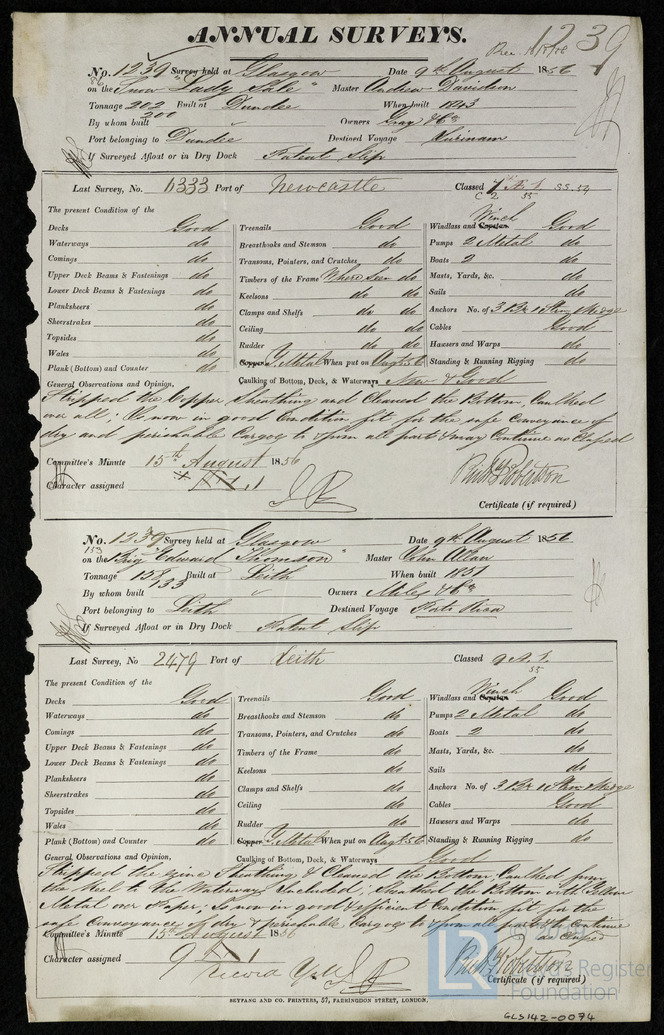 ANNUAL SURVEYS.
1239
No. 1239 Survey held at Glasgow Date 9th August 1856
on the Snow "Lady Sale" Master Andrew Davidson
Tonnage 202 Built at Dundee When built 1843
200
By whom built Owners Gray & Co
Port belonging to Dundee Destined Voyage Surinam
If Surveyed Afloat or in Dry Dock Patent Slip
Last Survey, No. 1333 Port of Newcastle Classed A 1
The present Condition of the
Decks Good Treenails Good Windlass and Capstan Winch Good
Waterways do Breasthooks and Stemson do Pumps 2 Metal do
Comings do Transoms, Pointers, and Crutches do Boats 2 do
Upper Deck Beams & Fastenings do Timbers of the Frame Where Seen do Masts, Yards, &c. do
Lower Deck Beams & Fastenings do Keelsons do do Sails do
Planksheers do Clamps and Shelfs do do Anchors No. of 3 Br 1 Strm & Kedge
Sheerstrakes do Ceiling do do Cables Good
Topsides do Rudder do do Hawsers and Warps do
Wales do Copper Y Metal When put on Aug 56 Standing & Running Rigging do
Plank (Bottom) and Counter do Caulking of Bottom, Deck, & Waterways New & Good
General Observations and Opinion,
Stripped the Copper Sheathing and Cleaned the Bottom, Caulked
over all; Is now in good Condition fit for the safe Conveyance of
dry and perishable Cargoes to & from all parts & may Continue as Classed
Committee's Minute 15th August 1856
Character assigned
Certificate (if required)
No. 1239 Survey held at Glasgow Date 9th August 1856
on the Brig "Edward Thomson" Master John Allan
Tonnage Built at Leith When built 1851
133
By whom built Owners Miles & Co
Port belonging to Leith Destined Voyage Porto Rica
If Surveyed Afloat or in Dry Dock Patent Slip
Last Survey, No 2479 Port of Leith Classed 9 A 1
55
The present Condition of the
Decks Good Treenails Good Windlass and Capstan Winch Good
Waterways do Breasthooks and Stemson do Pumps 2 Metal do
Comings do Transoms, Pointers, and Crutches do Boats 2 do
Upper Deck Beams & Fastenings do Timbers of the Frame do Masts, Yards, &c. do
Lower Deck Beams & Fastenings do Keelsons do Sails do
Planksheers do Clamps and Shelfs do Anchors No. of 3 Br 1 Strm & Kedge
Sheerstrakes do Ceiling do Cables Good
Topsides do Rudder do Hawsers and Warps do
Wales do Copper Y Metal When put on Aug 56 Standing & Running Rigging do
Plank (Bottom) and Counter do Caulking of Bottom, Deck, & Waterways Good
General Observations and Opinion,
Stripped the Zinc Sheathing & Cleaned the Bottom, Caulked from
the Keel to the Waterways Included; Sheathed the Bottom with Yellow
Metal over Paper; Is now in good & efficient Condition fit for the
safe Conveyance of dry & perishable Cargoes to & from all parts & Continue
as Classed
Committee's Minute 15th August 1856
Character assigned 9 A 1
Record Y M
Certificate (if required)
LR
Lloyd's Register
Foundation
SEYFANG AND CO. PRINTERS, 57, FARRINGDON STREET, LONDON.
GLS142-0074